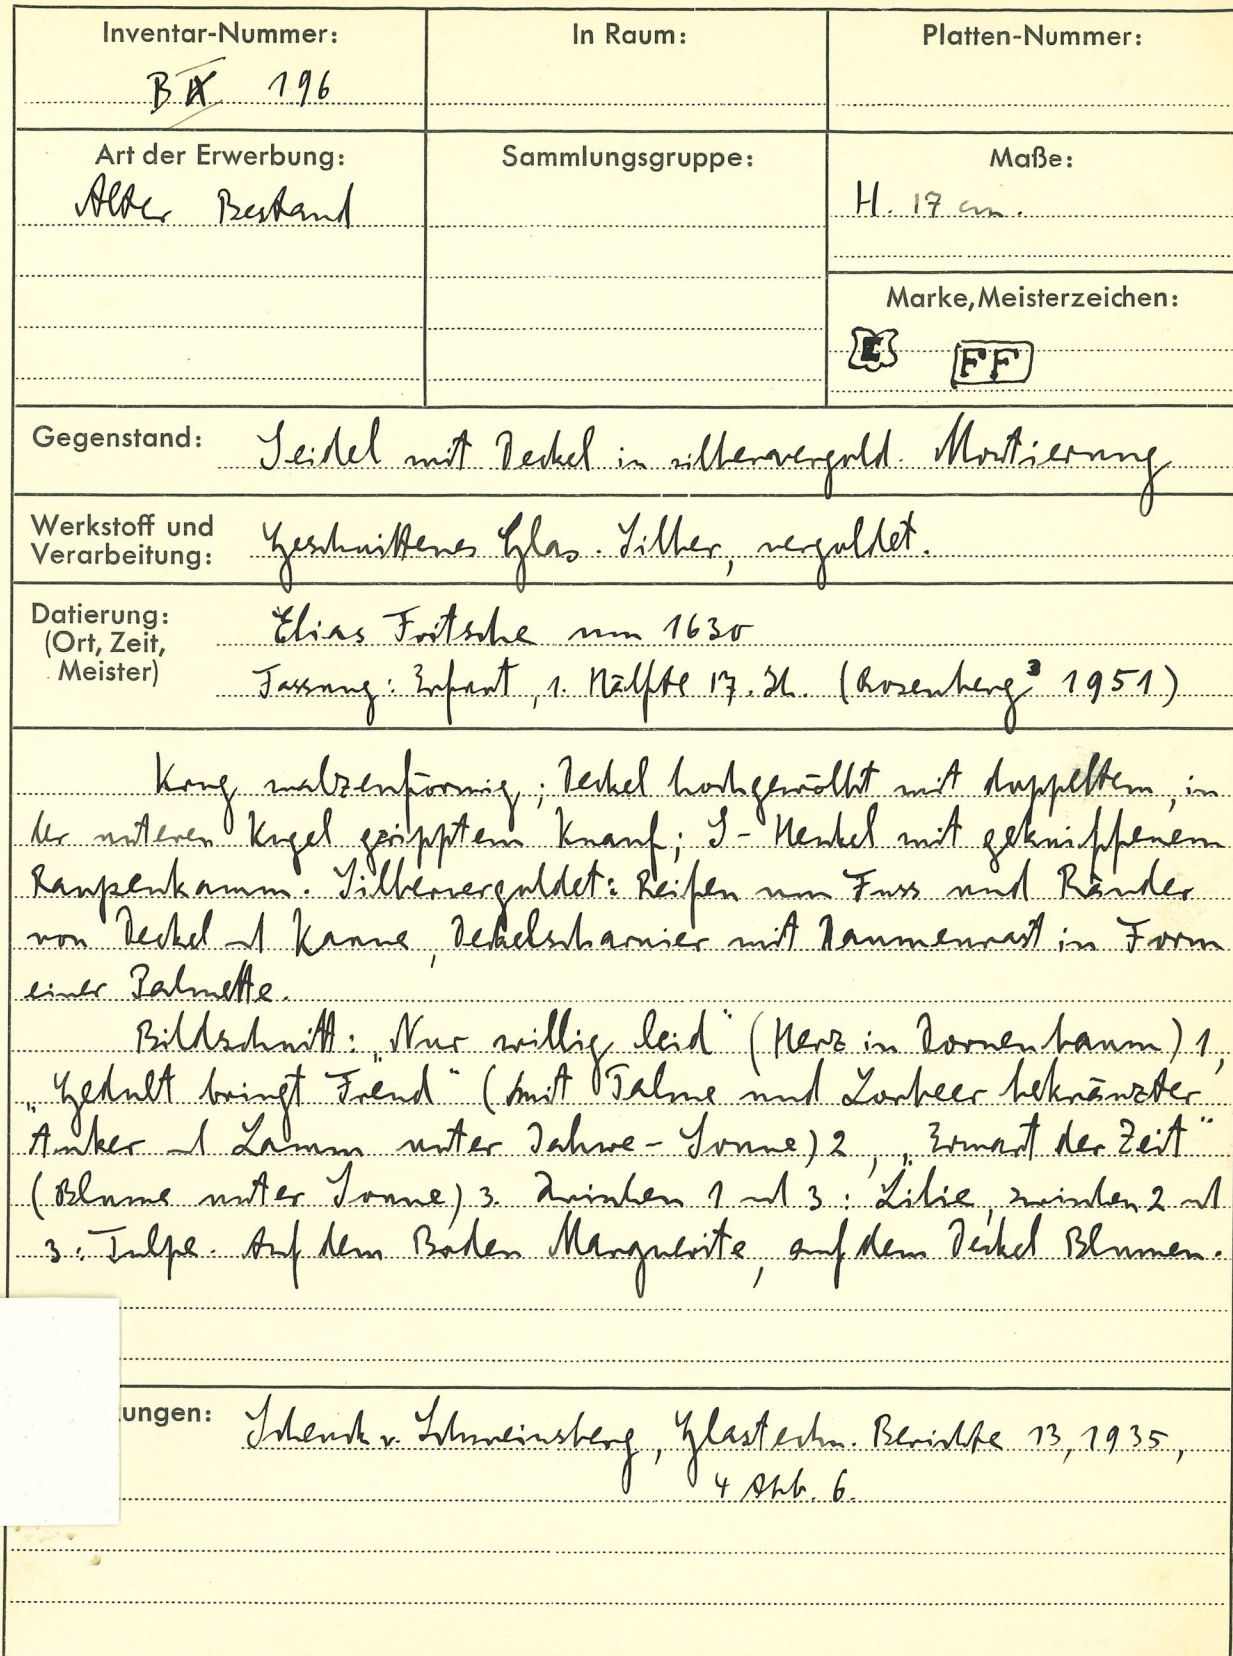 Inventar-Nummer:
B IX 196
In Raum:
Platten-Nummer:
Art der Erwerbung:
Alter Bestand
Sammlungsgruppe:
Maße:
H. 17 cm.
Marke, Meisterzeichen:
E FF
Gegenstand: Seidel mit Deckel in silbervergold. Montierung
Werkstoff und
Verarbeitung: Geschnittenes Glas. Silber, vergoldet.
Datierung:
(Ort, Zeit,
Meister)
Elias Fritsche um 1630
Fassung: Erfurt, 1. Hälfte 17. Jh. (Rosenberg³ 1951)
Krug walzenförmig; Deckel hochgewölbt mit doppeltem, in
der unteren Kugel geripptem Knauf; S-Henkel mit gekniffenem
Raupenkamm. Silbervergoldet: Reifen um Fuss und Ränder
von Deckel und Kanne, Deckelscharnier mit Daumenrast in Form
einer Palmette.
Bildschnitt: „Nur willig leid" (Herz in Dornenbaum) 1,
„Gedult bringt Freud" (mit Palme und Lorbeer bekränzter
Anker und Lamm unter Jahwe-Sonne) 2, „Erwart der Zeit"
(Blume unter Sonne) 3. Zwischen 1 und 3: Lilie, zwischen 2 und
3: Tulpe. Auf dem Boden Marguerite, auf dem Deckel Blumen.
ungen: Schenk v. Schweinsberg, Glastechn. Berichte 13, 1935,
4 Abb. 6.